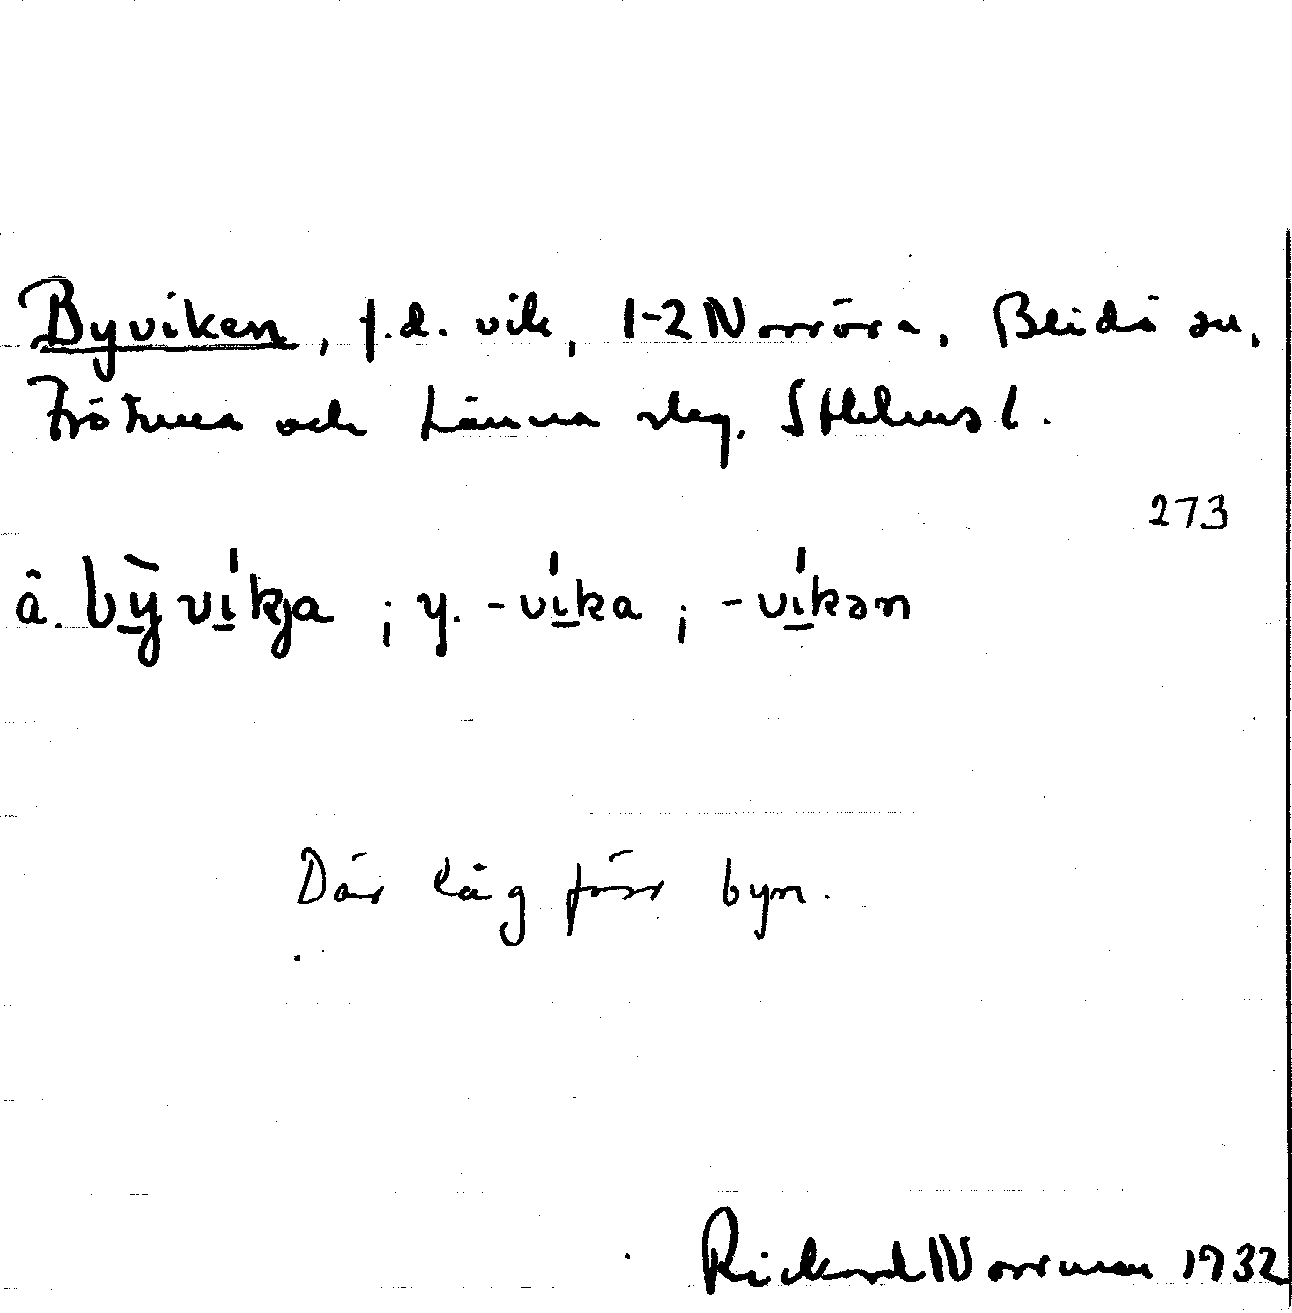 Byviken, f.d. vik, 1-2 Norröra, Blidö sn,
Frötuna och Länna slg. Sthlms l.
273
ä. bỳ̱ví̱kja ; y. -ví̱ka ; -ví̱kən
Där låg förr byn.
Rickard Norrman 1932